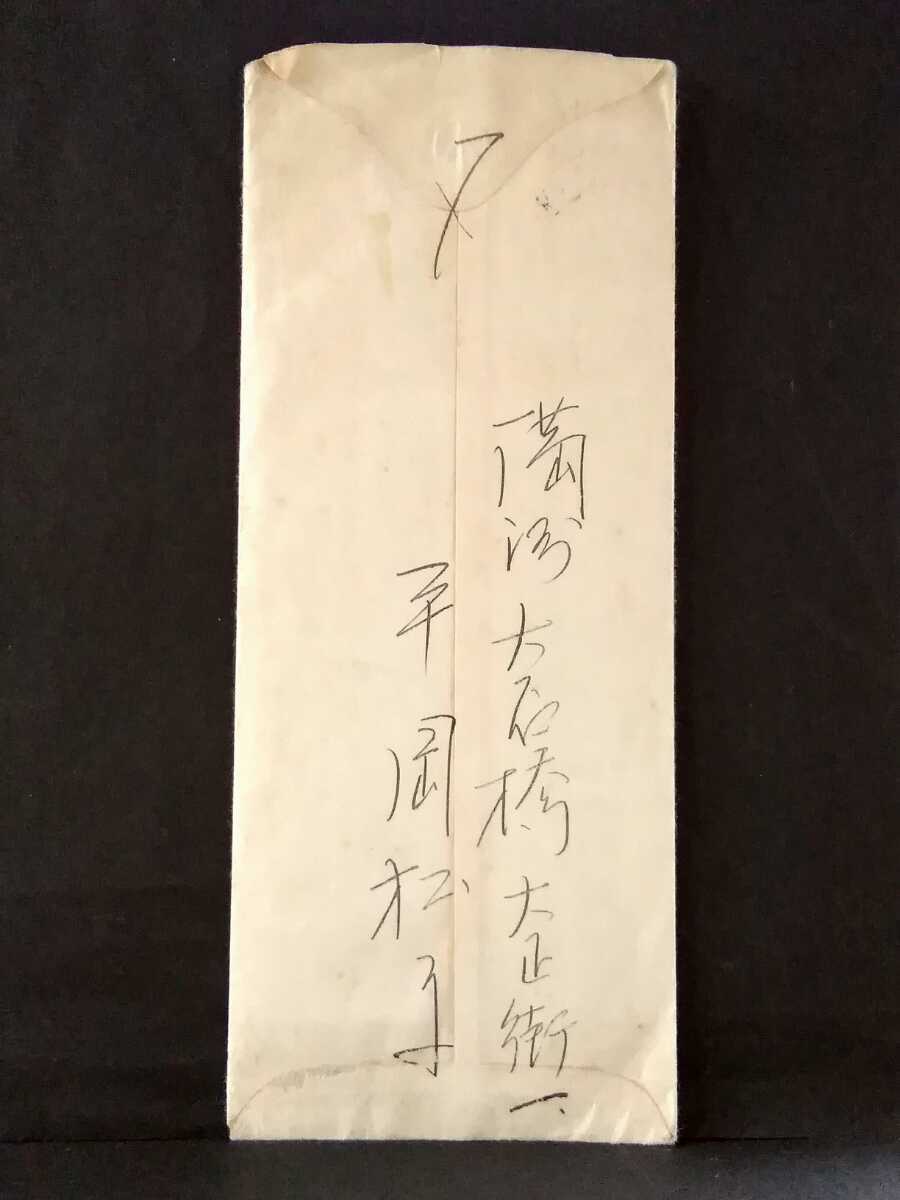 〆
満洲大石橋大正街一、
平岡松子